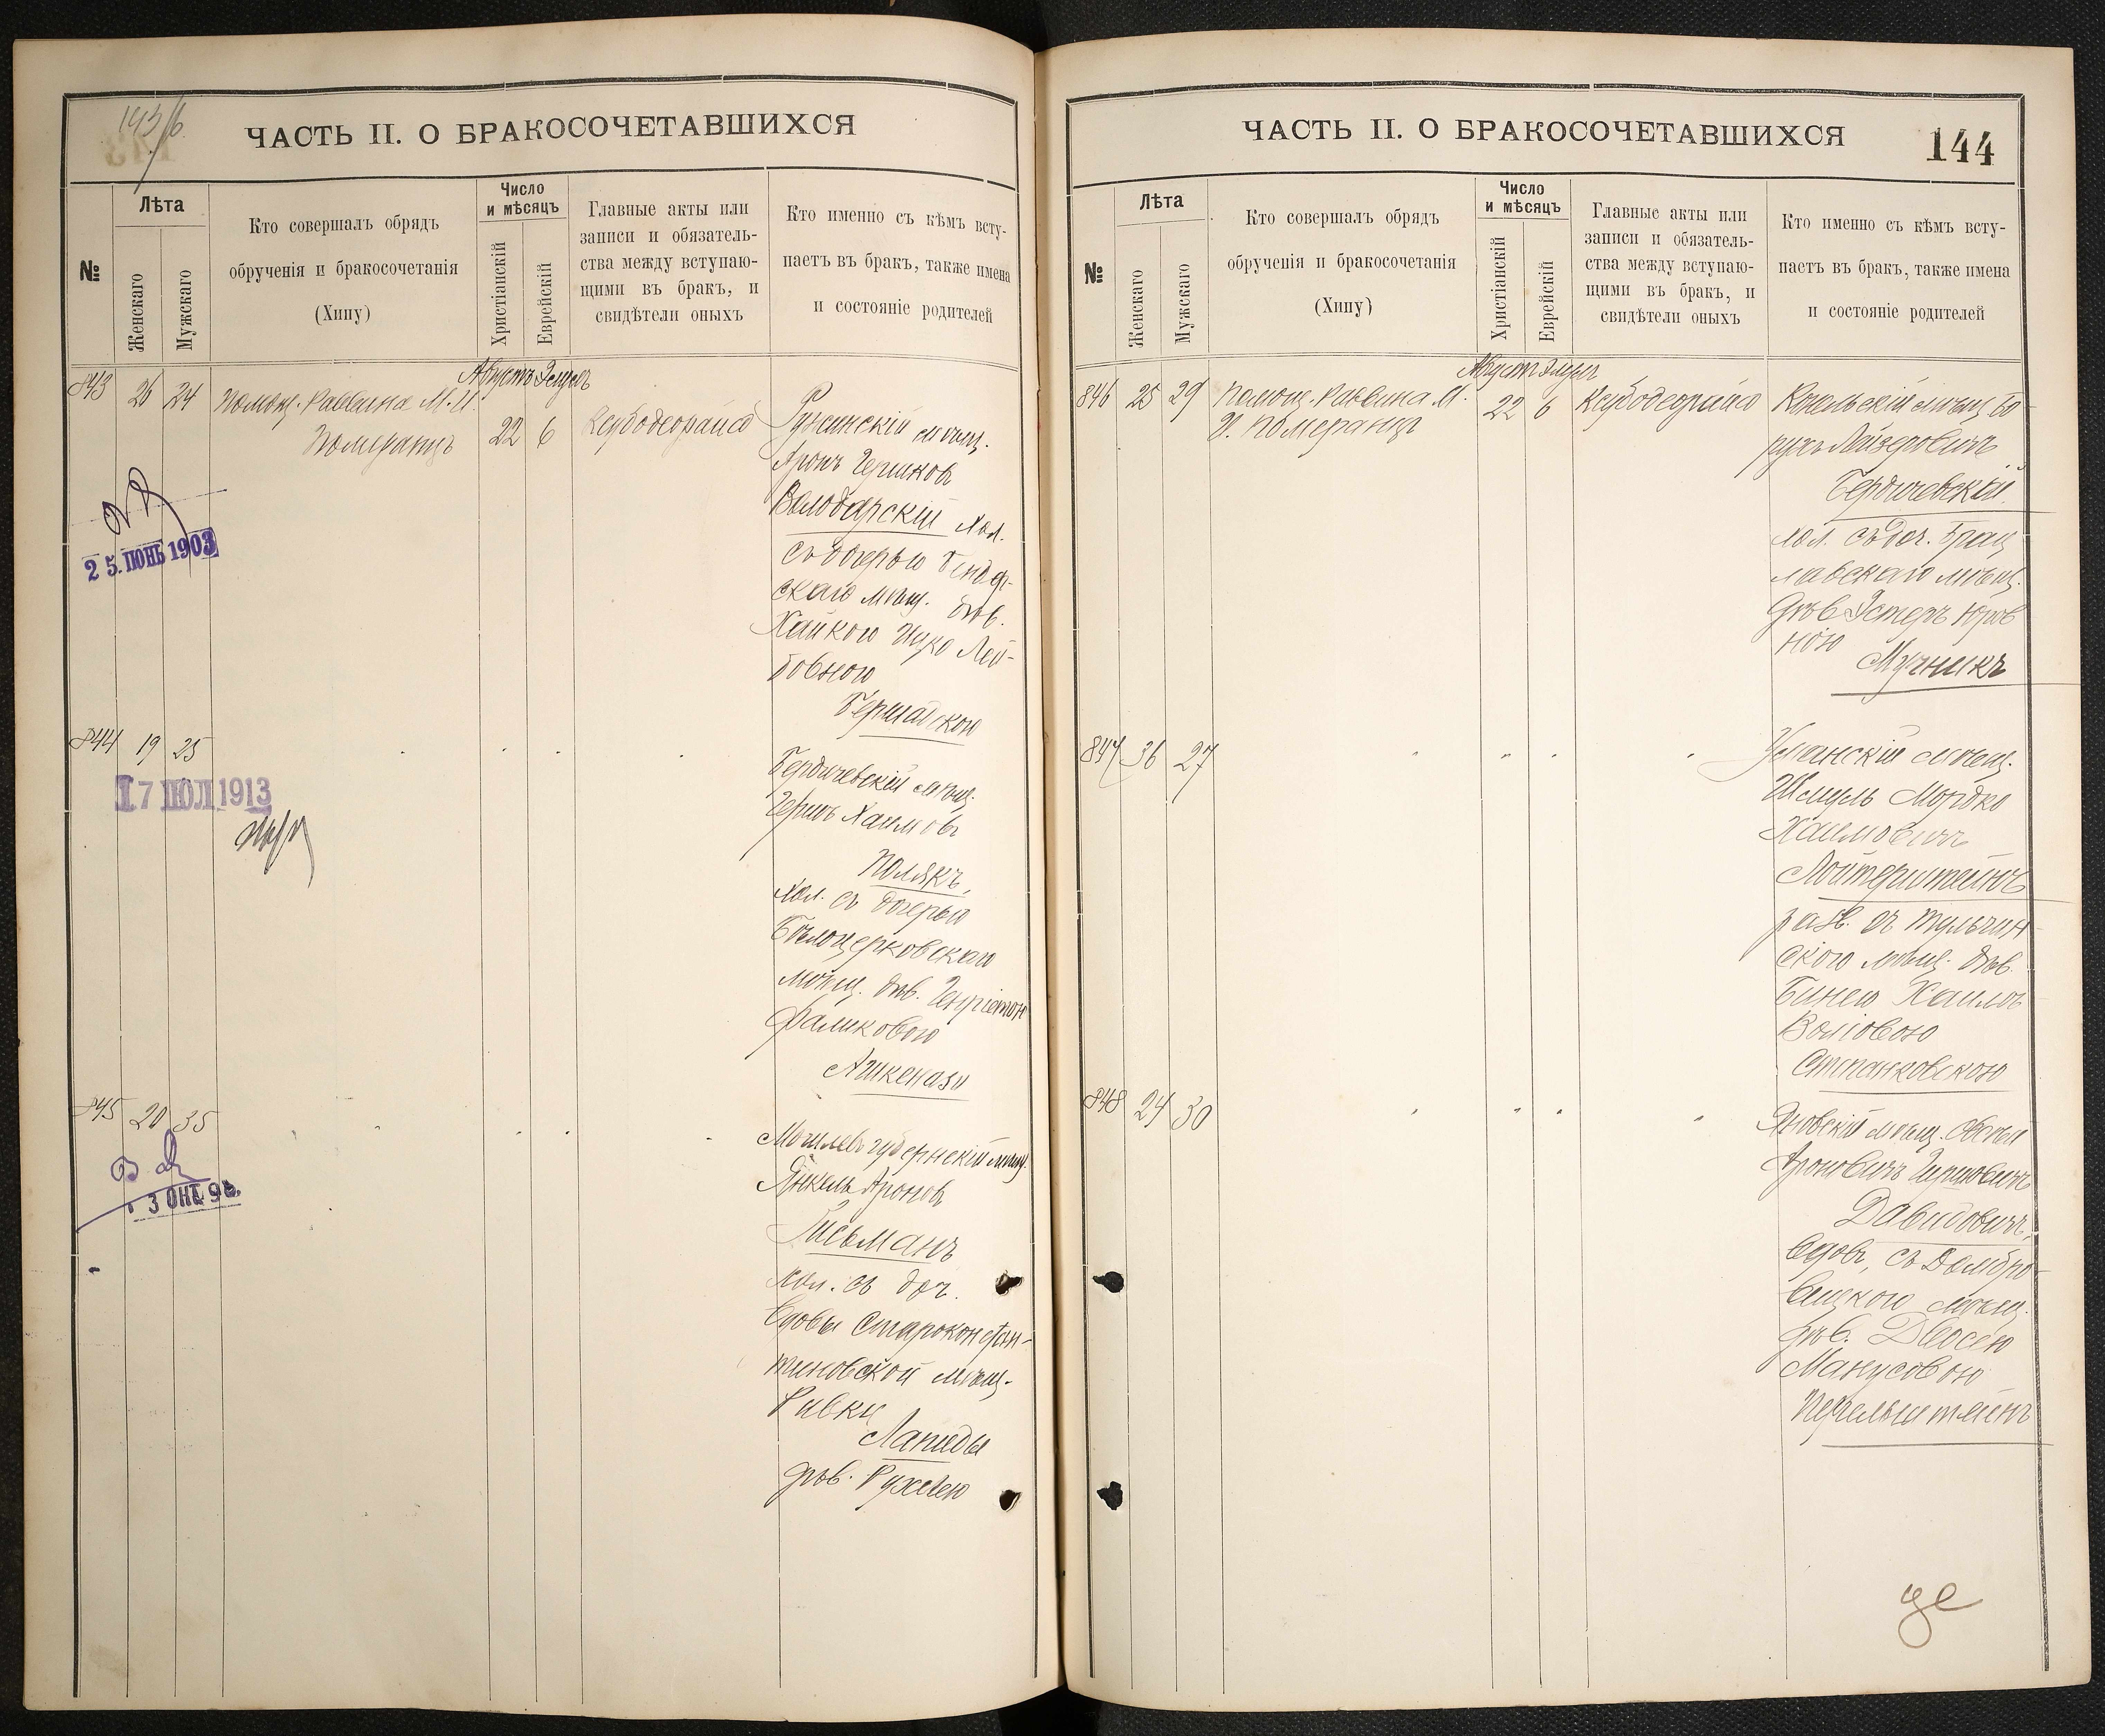 143/б.
ЧАСТЬ II. О БРАКОСОЧЕТАВШИХСЯ
№
Лѣта
Женскаго
Мужскаго
Кто совершалъ обрядъ
обрученія и бракосочетанія
(Хипу)
Число
и мѣсяцъ
Христіанскій
Еврейскій
Главные акты или
записи и обязатель-
ства между вступаю-
щими въ бракъ, и
свидѣтели оныхъ
Кто именно съ кѣмъ всту-
паетъ въ бракъ, также имена
и состояніе родителей
Августъ Элулъ
843 26 24 Помощ. Раввина М. И.
Померанцъ
22 6
Ксубодеорайсо
Ружинскій мѣщ.
Аронъ Гершковъ
Володарскій хол.
съ дочерью Бендер-
скаго мѣщ. дѣв.
Хайкою Лей-
бовною
Бершадскою
25. ІЮНЬ 1903
844 19 25
Бердичевскій мѣщ.
Гершъ Хаимовъ
Полякъ,
хол. съ дочерью
Бѣлоцерковскаго
мѣщ. дѣв. Генріетою
Фаликовою
Ашкенази
17 ІЮЛ 1913
845 20 35
Могилевъ губернскій мѣщ.
Янкель Ароновъ
Письманъ
хол. съ доч.
вдовы Староконстан-
тиновской мѣщ.
Ривки
Лапиды
дѣв. Рухлею
3 ОКТ 98.
ЧАСТЬ II. О БРАКОСОЧЕТАВШИХСЯ
144
№
Лѣта
Женскаго
Мужскаго
Кто совершалъ обрядъ
обрученія и бракосочетанія
(Хипу)
Число
и мѣсяцъ
Христіанскій
Еврейскій
Главные акты или
записи и обязатель-
ства между вступаю-
щими въ бракъ, и
свидѣтели оныхъ
Кто именно съ кѣмъ всту-
паетъ въ бракъ, также имена
и состояніе родителей
Августъ Элулъ
846 25 29 Помощ. Раввина М.
И. Померанцъ
22 6
Ксубодеорайсо
Кнельскій мѣщ. Бо
рухъ Лейзеровичъ
Бердичевскій
хол. съ доч. Брац
лавскаго мѣщ.
дѣв. Эстеръ
ною
Мучникъ
847 36 27
Уманскій мѣщ.
Шмуль Мордко
Хаимовичъ
Лойтерштейнъ
разв. съ Тульчин
скою мѣщ. дѣв.
Бинею Хаимовъ
Волговою
Степанковскою
848 24 30
Яновскій мѣщ. Овсей
Ароновичъ Гершковичъ
Давидовичъ,
вдовъ, съ Домбро-
вицкою мѣщ.
дѣв. Двосею
Манусовою
Перельштейнъ